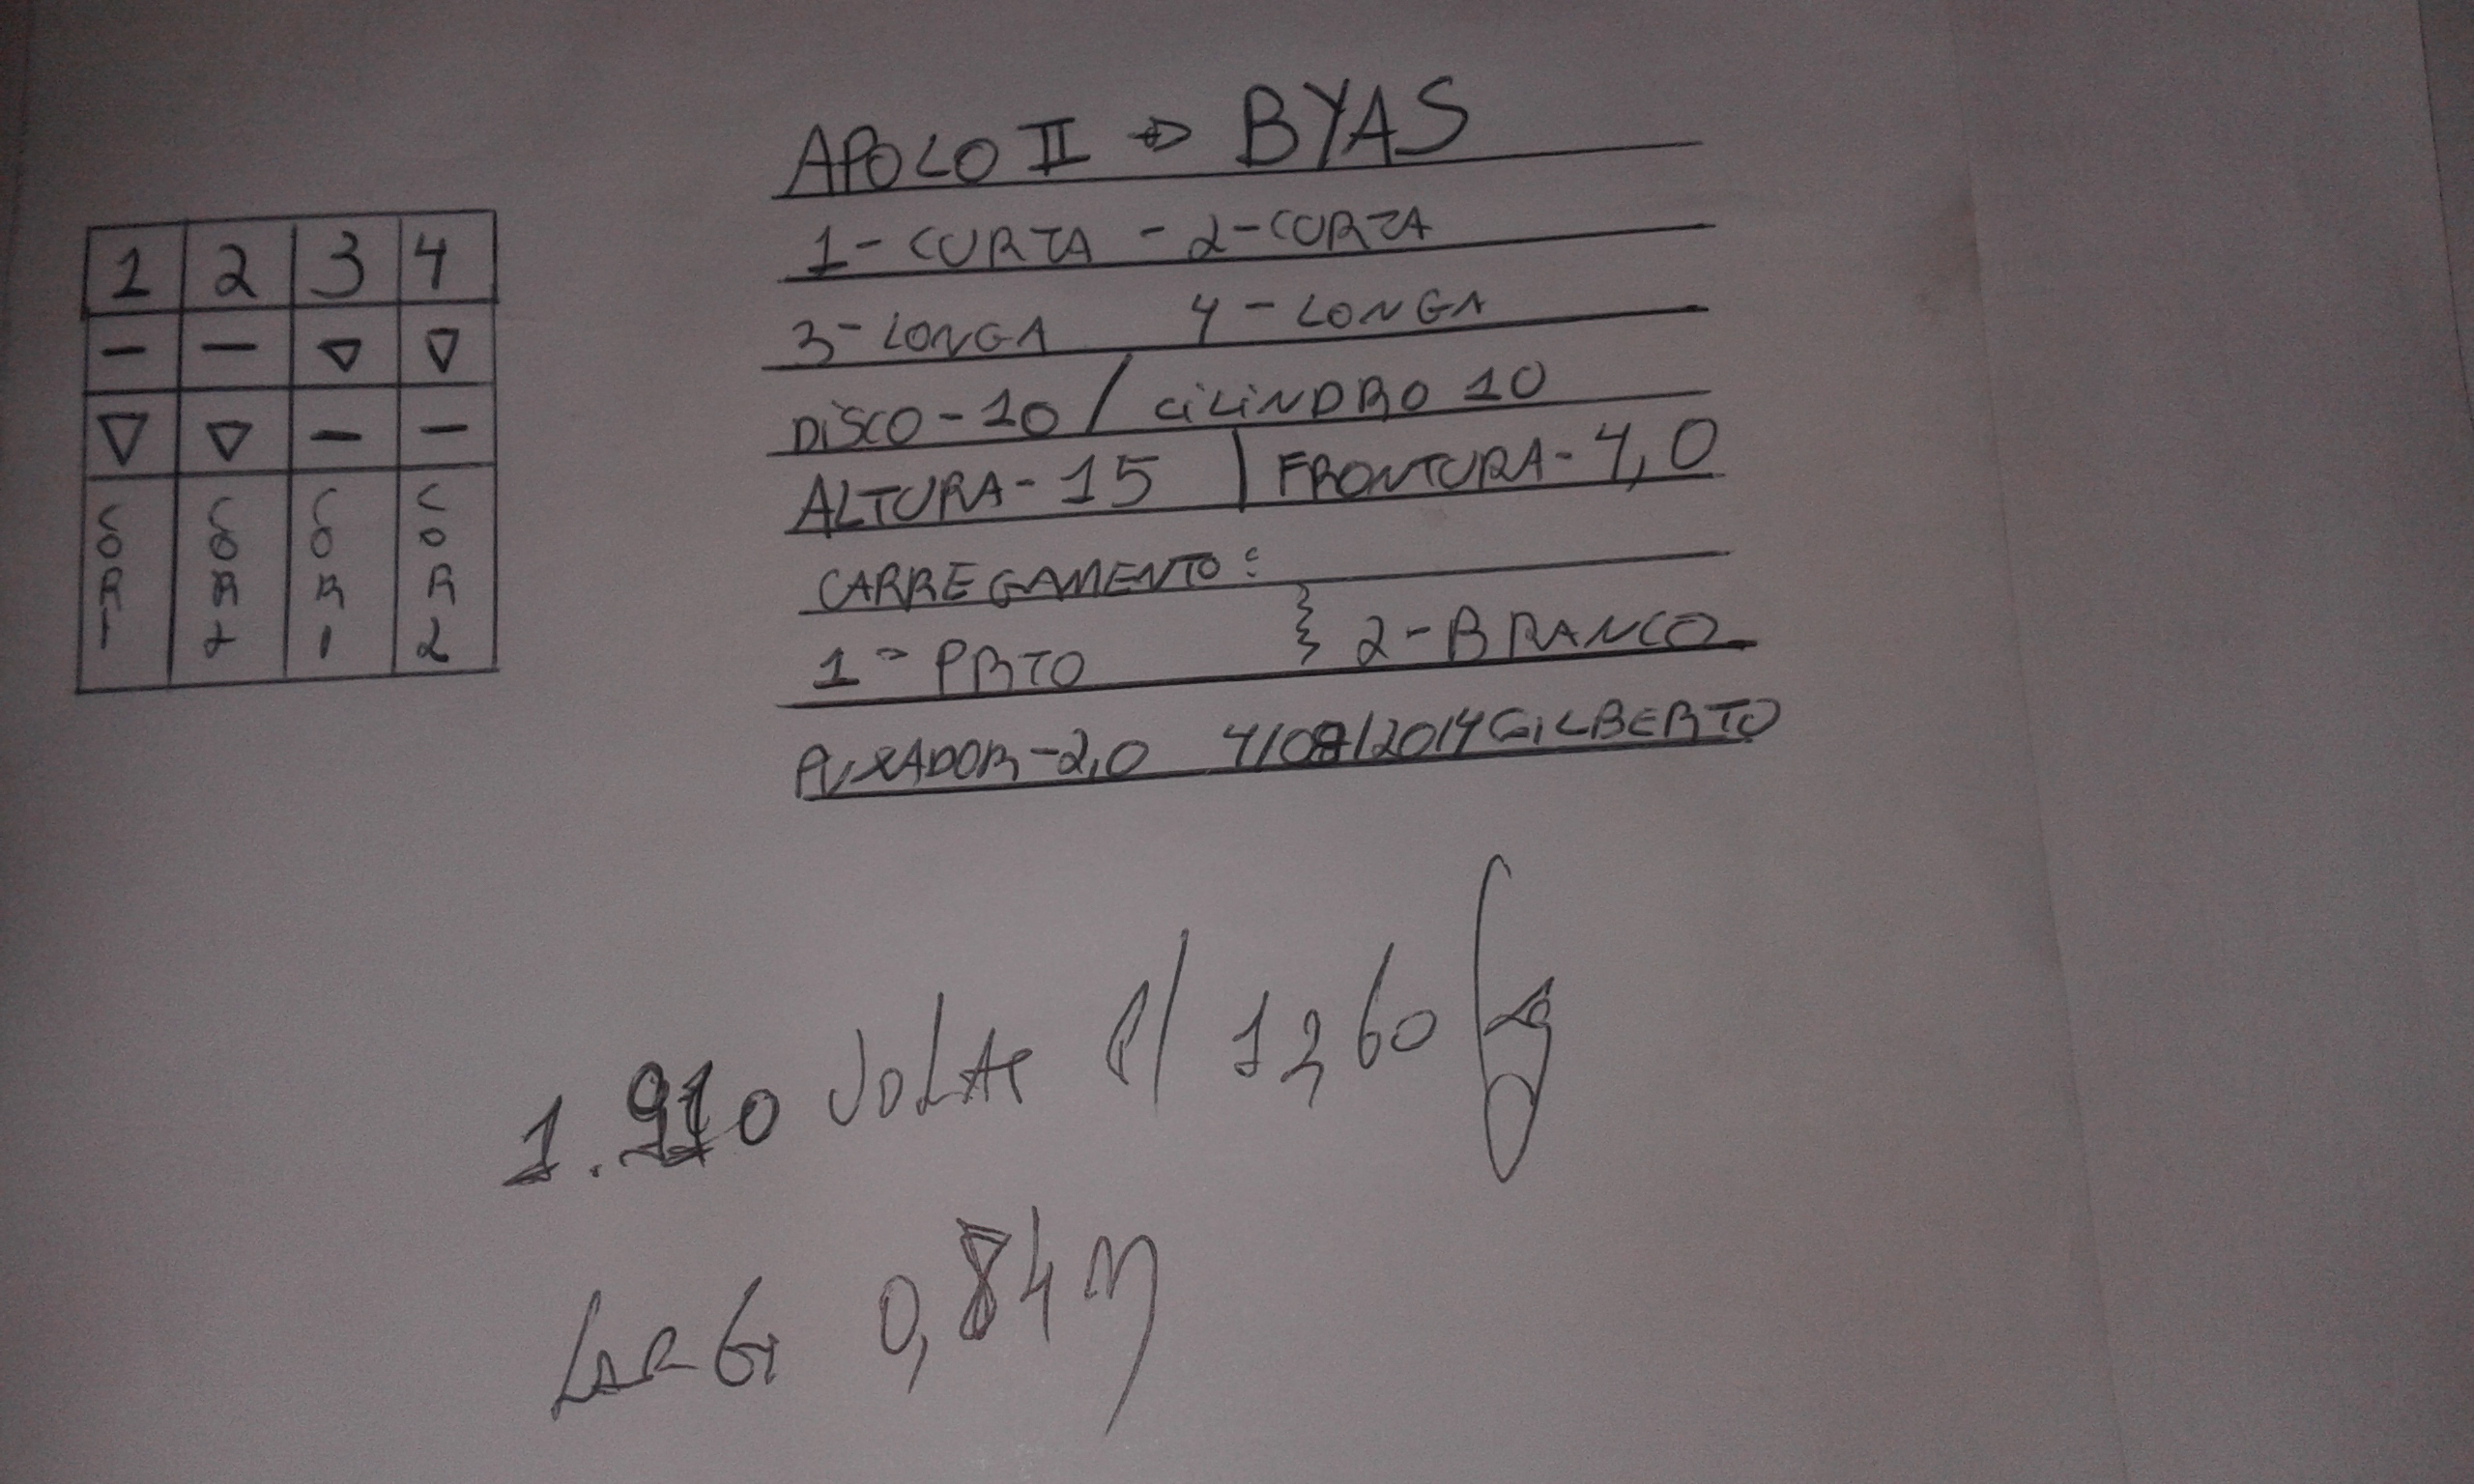 1 2 3 4
— — ▽ ▽
▽ ▽ — —
COR 1 COR 2 COR 1 COR 2
APOLO II ➩ BYAS
1- CURTA - 2-CURTA
3- LONGA 4 - LONGA
DISCO - 10 / CILINDRO 10
ALTURA - 15 | FRONTURA - 4,0
CARREGAMENTO:
1 - PRTO } 2 - BRANCO
PUXADOR - 2,0 4/08/2014 GILBERTO
1.910 VOLTAS P/
LARG 0,84 M